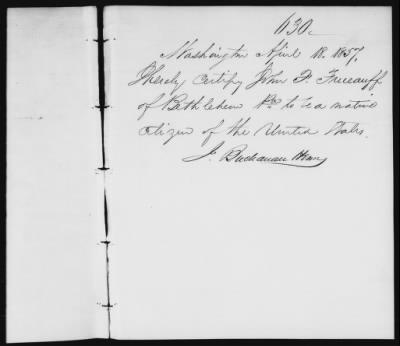 630.
Washington April 18. 1857.
I hereby certify John F. Frueauff
of Bethlehem Pa to be a native
citizen of the United States.
J. Buchanan Henry